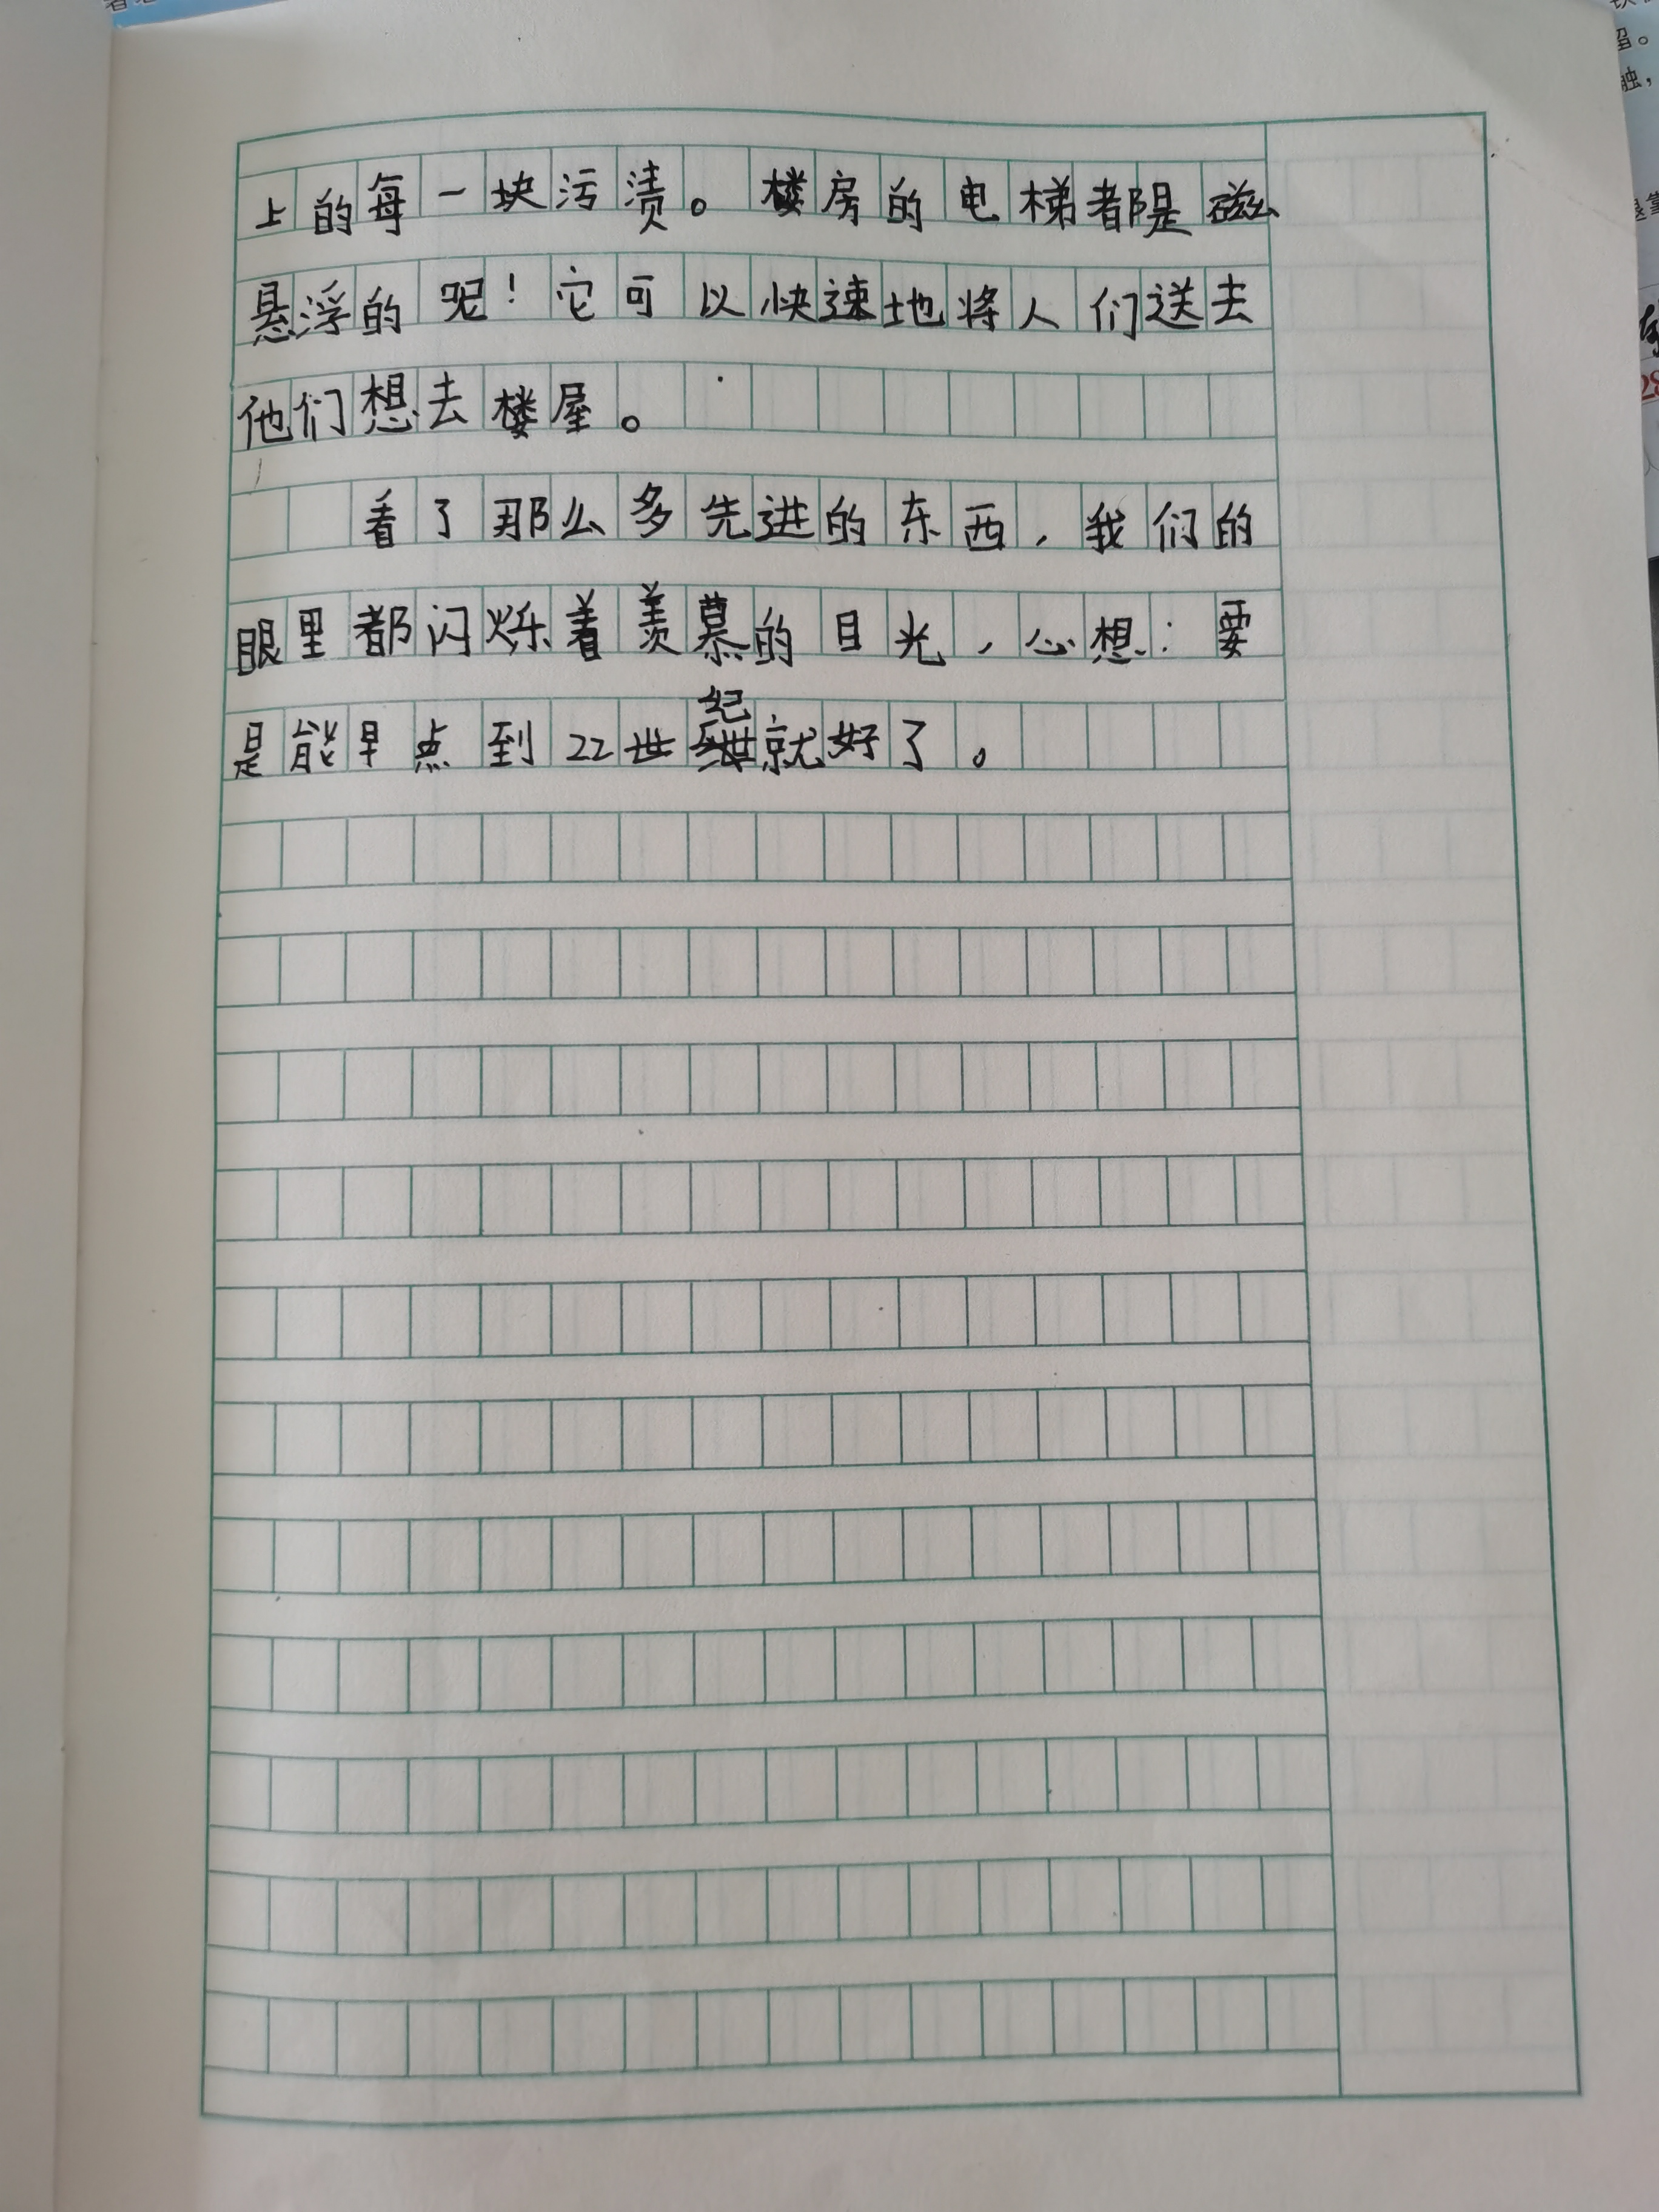 上的每一块污渍。楼房的电梯都是磁
悬浮的呢！它可以快速地将人们送去
他们想去楼屋。
看了那么多先进的东西，我们的
眼里都闪烁着羡慕的目光，心想：要
是能早点到22世纪就好了。